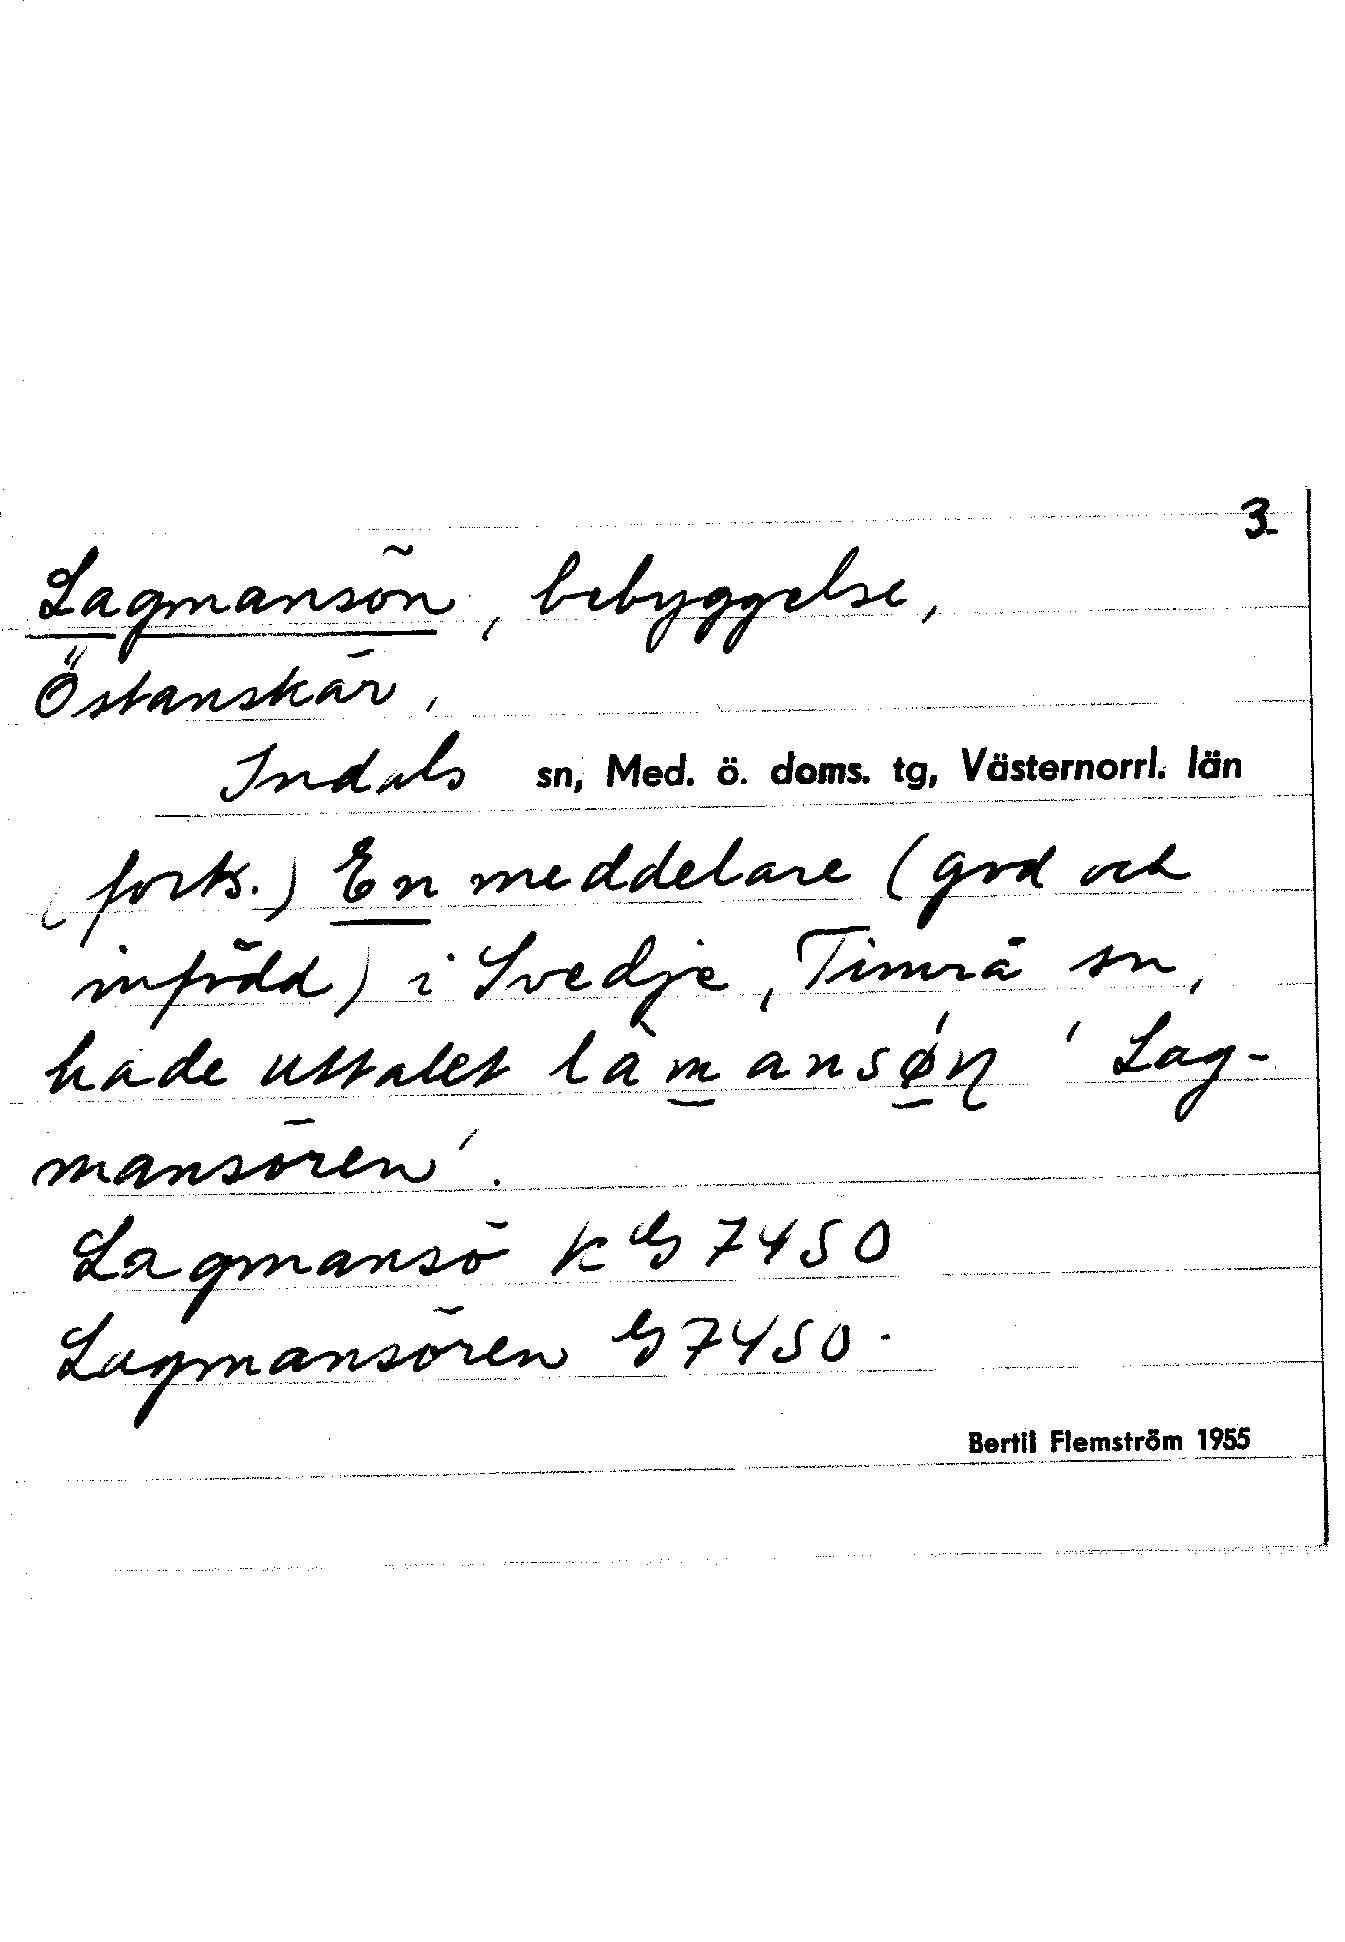 3.
Lagmansön, bebyggelse,
Östanskär,
Indals sn, Med. ö. doms. tg, Västernorrl. län
(forts.) En meddelare (gvd och
infödd) i Svedje, Timrå sn,
hade uttalet làmansǿɳ 'Lag-
mansören'.
Lagmansö k G 7450
Lagmansören G 7450.
Bertil Flemström 1955